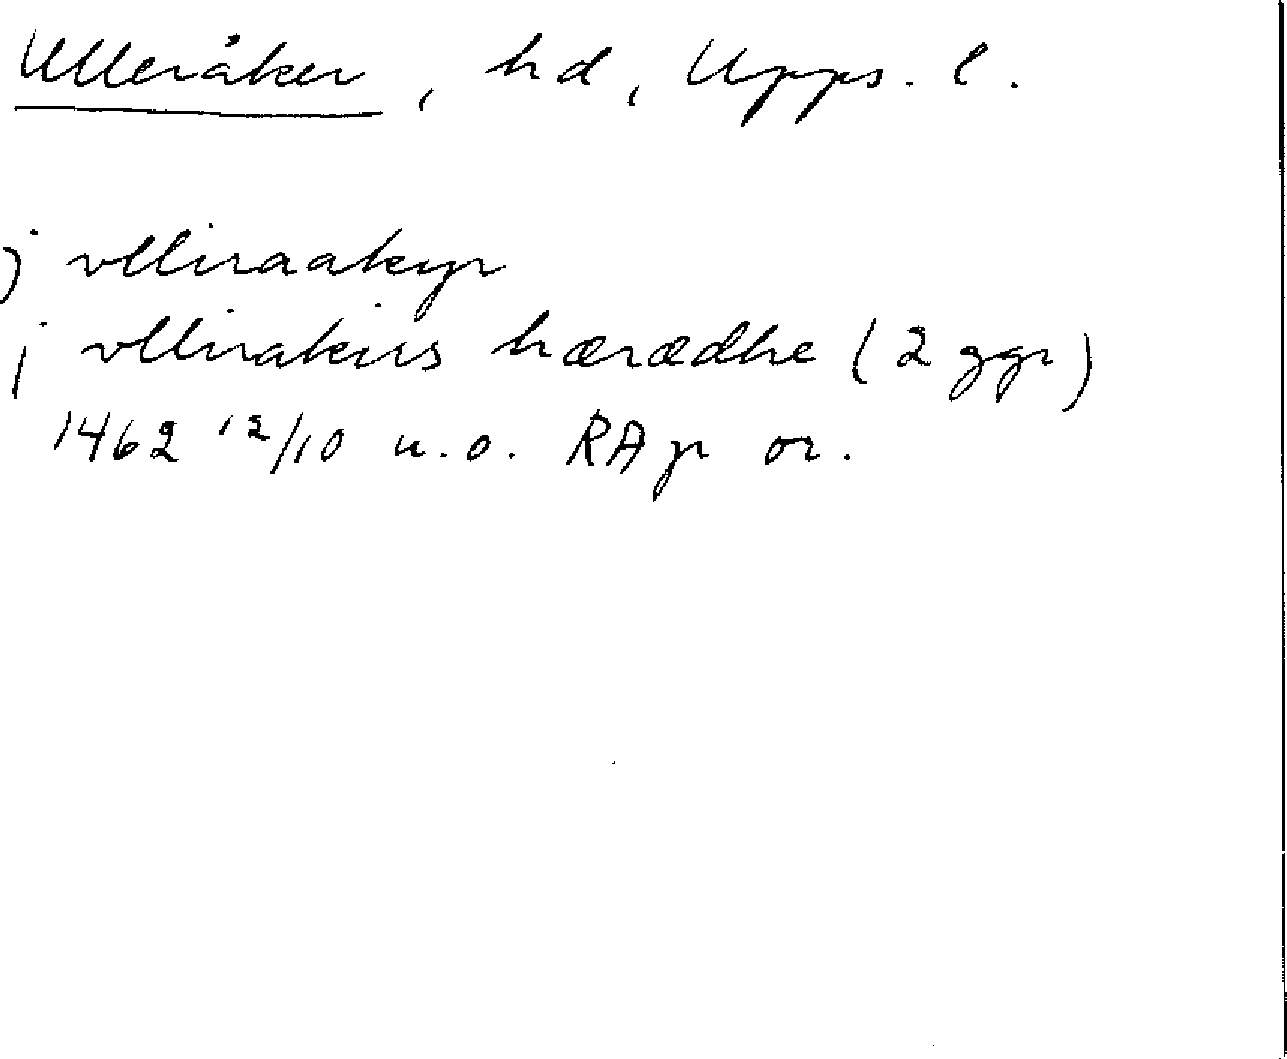 Ulleråker, hd, Upps. l.
j vlliraakyr
j vllirakirs hærædhe (2 ggr)
1462 12/10 u.o. RAp or.